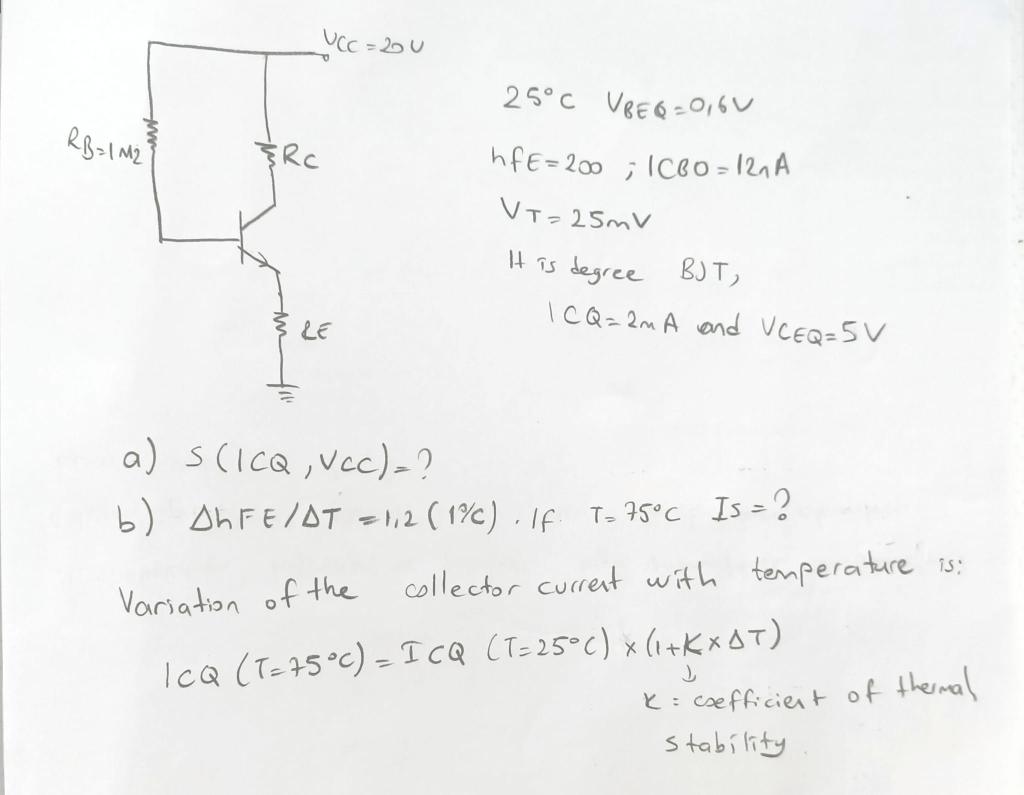 VCC = 20V
25°C VBEQ=0,6V
RB=1MΩ
RC
hfE=200 ; ICBO=12nA
VT=25mV
It is degree BJT,
ICQ=2mA and VCEQ=5V
RE
a) S(ICQ,VCC)=?
b) ΔhFE/ΔT =1,2 (1°/C) . If T=75°C Is=?
Variation of the collector current with temperature is:
ICQ (T=75°C)=ICQ (T=25°C) x(1+KxΔT)
K: coefficient of thermal
stability